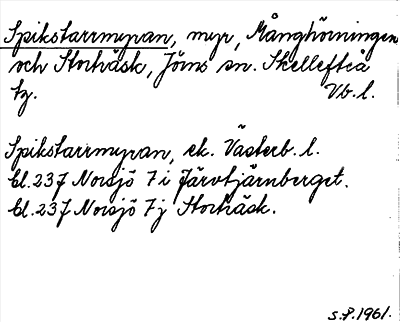 Spikstarrmyran, myr, Månghörningen
och Storträsk, Jörns sn. Skellefteå
tg. Vb. l.
Spikstarrmyran, ek. Västerb. l.
Bl. 237 Norsjö 7 i Järvtjärnberget.
Bl. 237 Norsjö 7 j Storträsk.
S.P. 1961.